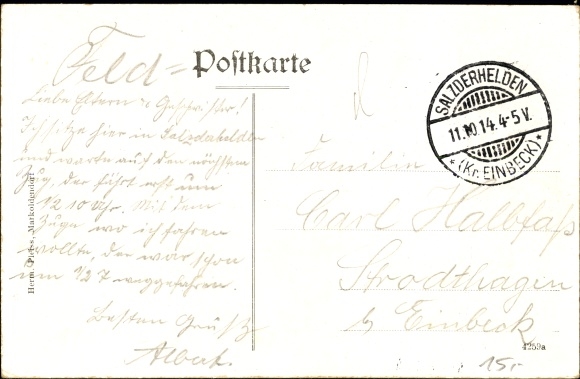 Feld= Postkarte
Liebe Eltern u Geschwister!
Ich sitze hier in Salzderhelden
und warte auf den nächsten
Zug, der fährt erst um
1/2 10 Uhr. Mit dem
Zuge wo ich fahren
wollte, der war schon
um 1/2 7 weggefahren.
Besten Gruß
Albert.
Herm. Pleiss, Markoldendorf
SALZDERHELDEN
11.10.14. 4-5 V.
* (Kr. EINBECK) *
Familie
Carl Halbfaß
Strodthagen
b/ Einbeck
4259a
15.-